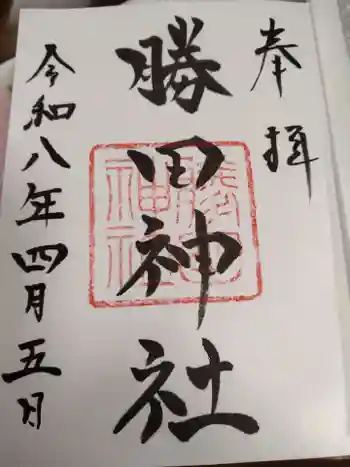 奉拝
勝田神社
勝田神社
令和八年四月五日